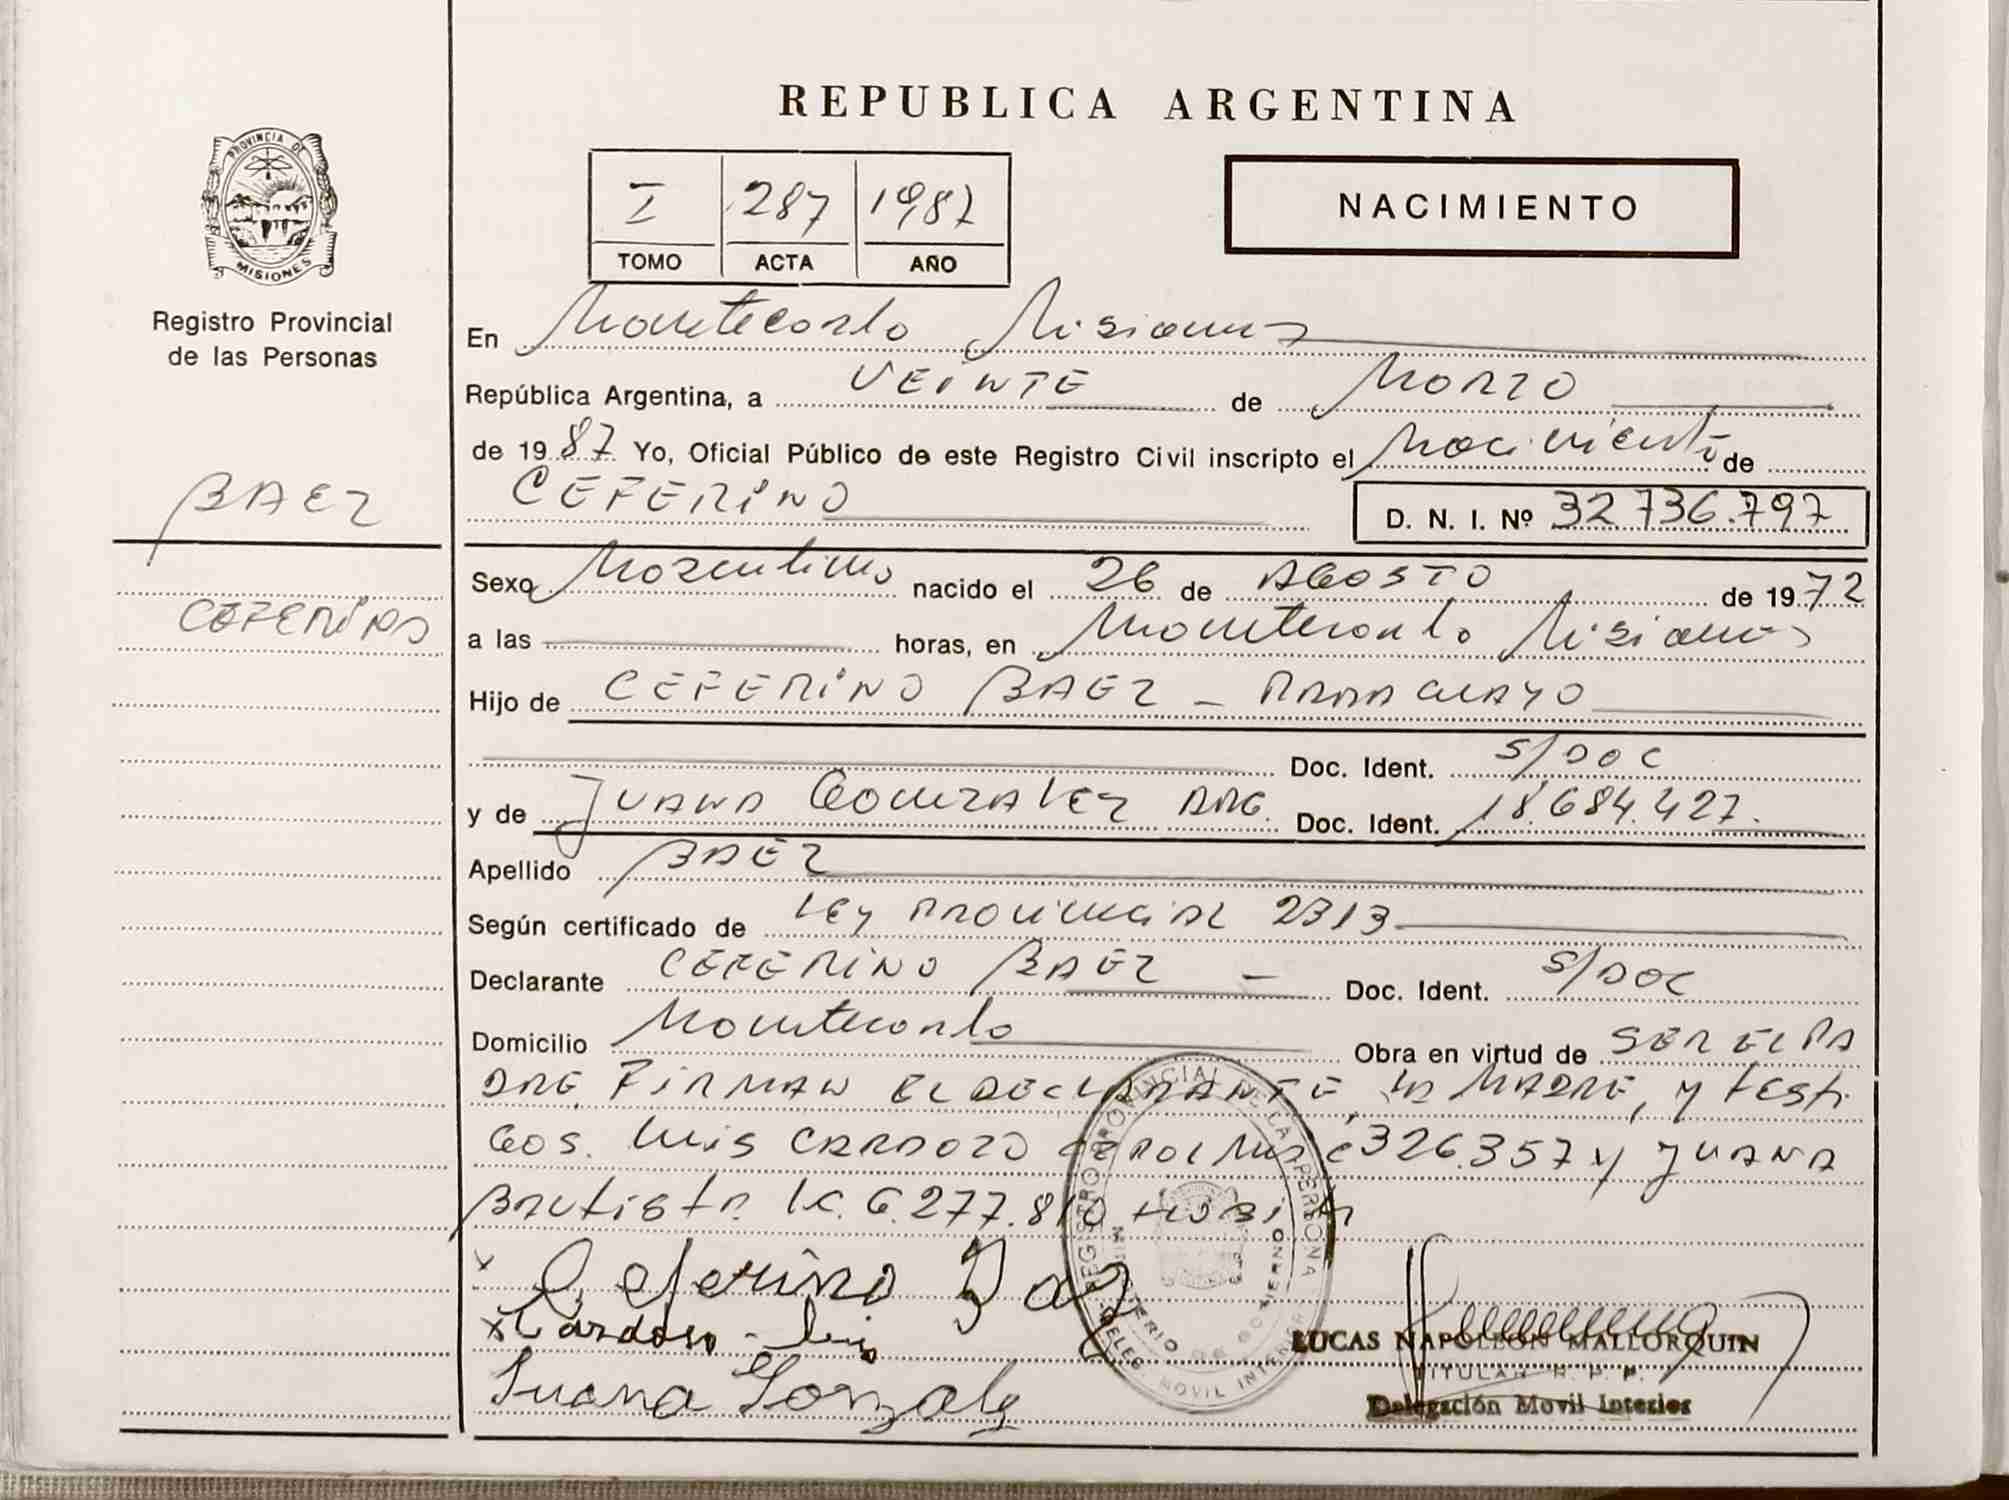 REPUBLICA ARGENTINA
PROVINCIA DE
MISIONES
Registro Provincial
de las Personas
I 287 1987
TOMO ACTA AÑO
NACIMIENTO
En Montecarlo Misiones
República Argentina, a VEINTE de Marzo
de 1987 Yo, Oficial Público de este Registro Civil inscripto el Nacimiento de
CEFERINO
D. N. I. Nº 32.736.797
BAEZ
CEFERINO
Sexo Masculino nacido el 26 de AGOSTO de 1972
a las horas, en Montecarlo Misiones
Hijo de CEFERINO BAEZ - PARAGUAYO
Doc. Ident. S/DOC
y de JUANA GONZALEZ ARG. Doc. Ident. 18.684.427.
Apellido BAEZ
Según certificado de LEY PROVINCIAL 2313
Declarante CEFERINO BAEZ - Doc. Ident. S/DOC
Domicilio Montecarlo Obra en virtud de SER EL PA
DRE FIRMAN EL DECLARANTE, LA MADRE, Y TESTI
GOS. LUIS CARDOZO 326.357 Y JUANA
BAUTISTA LC. 6.277.810
x Ceferino Baez
x Cardoso - Luis
Juana Gonzalez
REGISTRO PROVINCIAL DE LAS PERSONAS
MINISTERIO DE GOBIERNO
DELEG. MOVIL INTERIOR
LUCAS NAPOLEON MALLORQUIN
TITULAR R. P. P.
Delegación Movil Interior